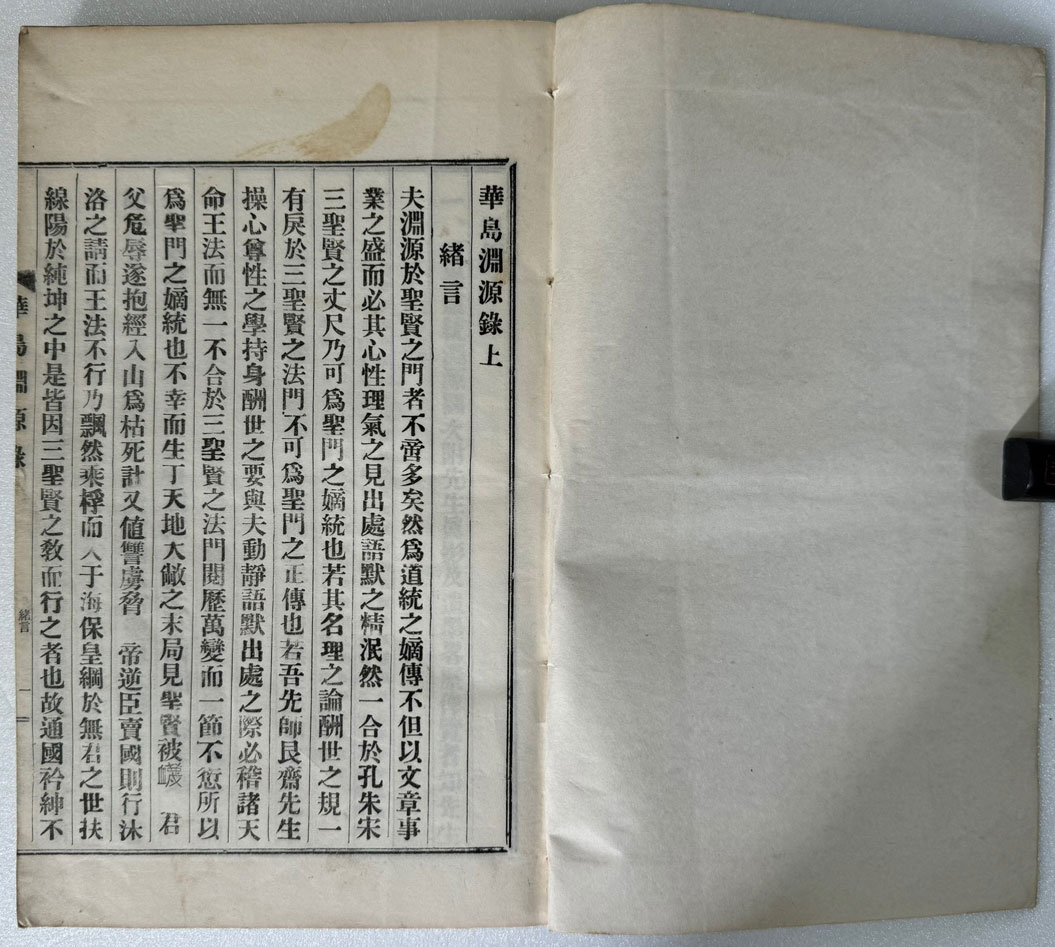 華島淵源錄上
緒言
夫淵源於聖賢之門者不啻多矣然爲道統之嫡傳不但以文章事
業之盛而必其心性理氣之見出處語默之精泯然一合於孔朱宋
三聖賢之丈尺乃可爲聖門之嫡統也若其名理之論酬世之規一
有戾於三聖賢之法門不可爲聖門之正傳也若吾先師艮齋先生
操心尊性之學持身酬世之要與夫動靜語默出處之際必稽諸天
命王法而無一不合於三聖賢之法門閱歷萬變而一節不愆所以
爲聖門之嫡統也不幸而生丁天地大敝之末局見聖賢被衊 君
父危辱遂抱經入山爲枯死計又値讐虜脅 帝逆臣賣國則行沐
洛之請而王法不行乃飄然乘桴而入于海保皇綱於無君之世扶
線陽於純坤之中是皆因三聖賢之敎而行之者也故通國衿紳不
華島淵源錄
緒言
一